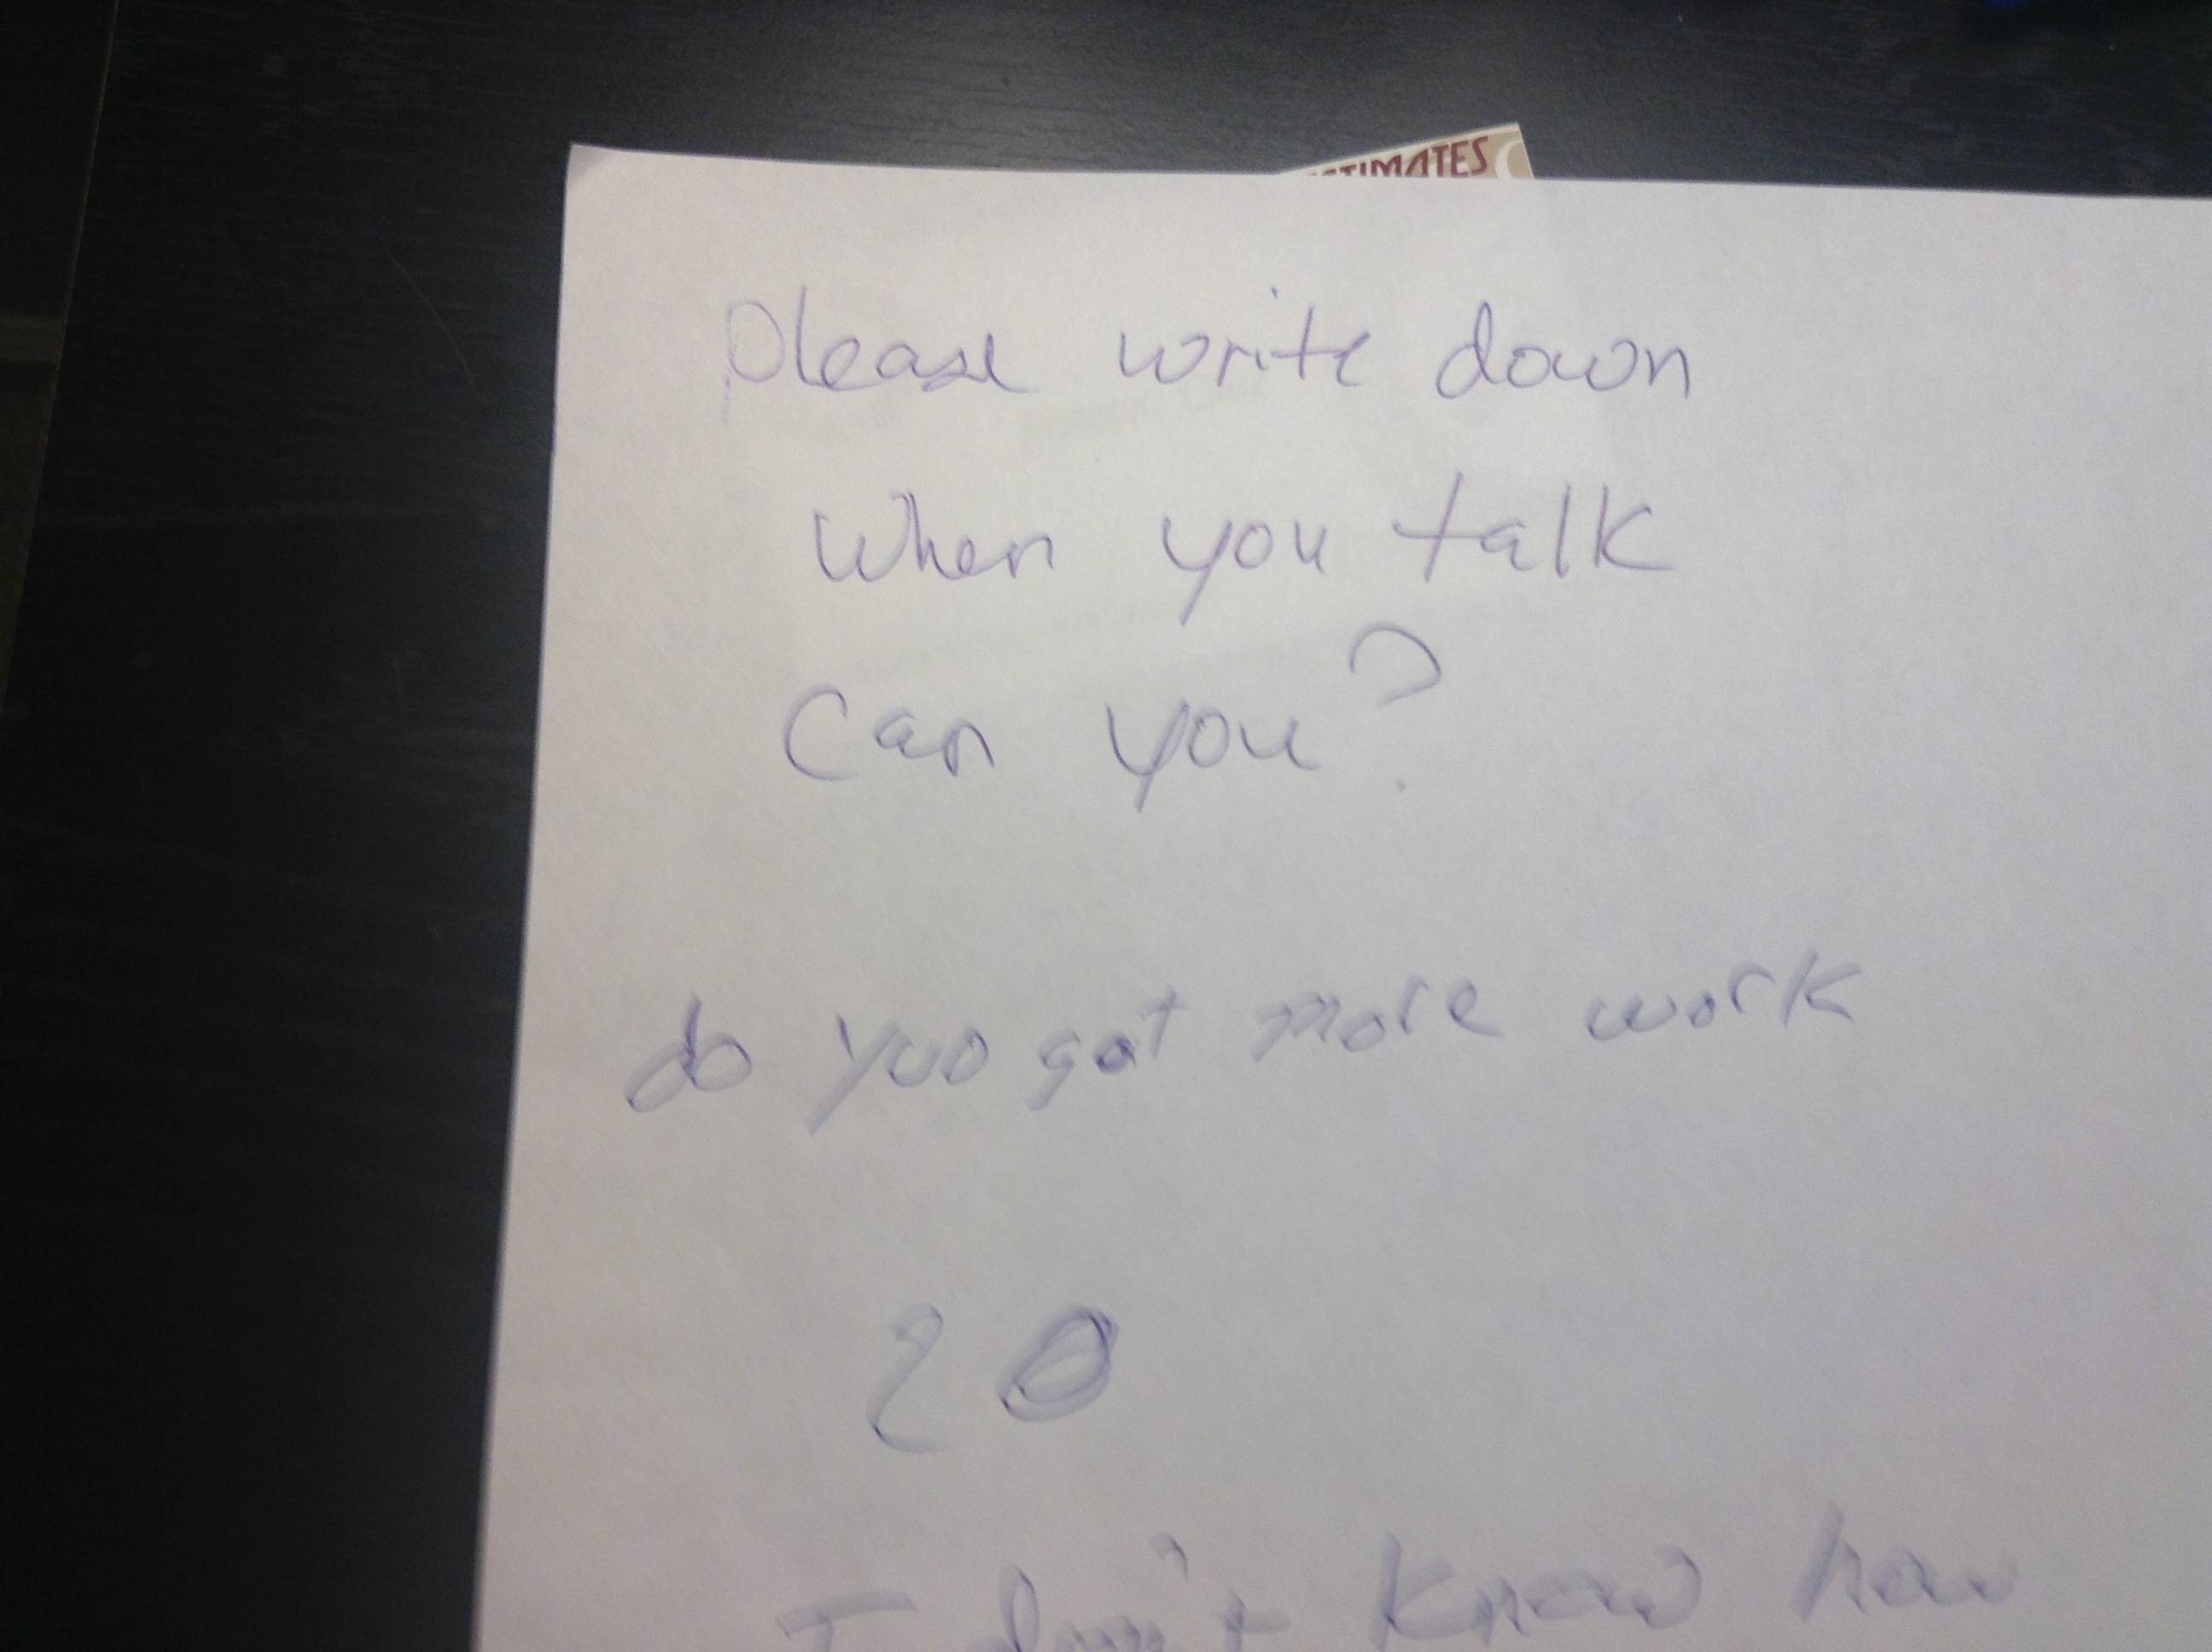 STIMATES
Please write down
When you talk
Can you?
do yuo got more work
20
I don't know how